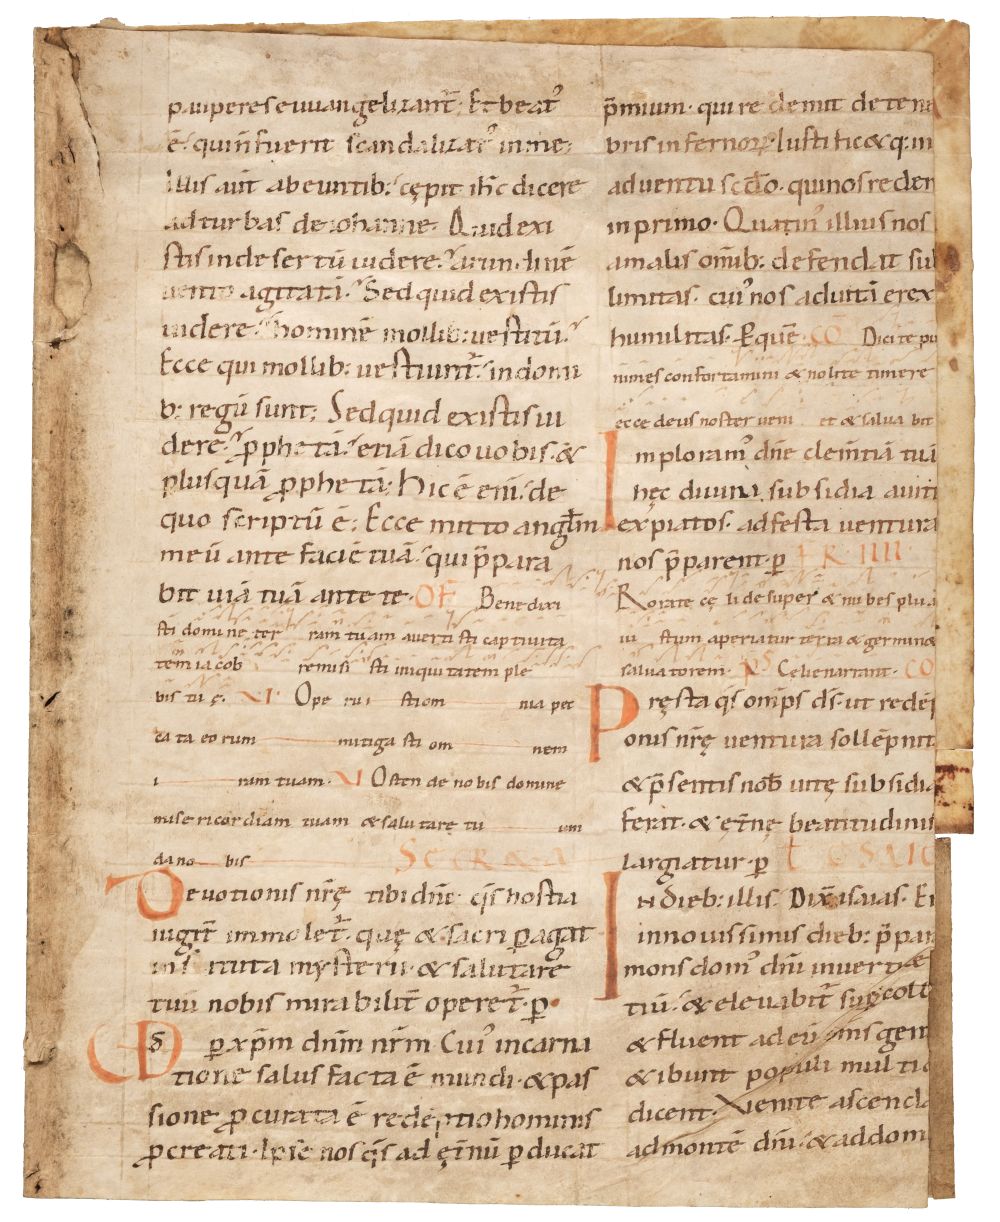 pauperes euuangelizant̄. Et beat᾽
ē. qui n̄ fuerit scandalizat᾽ in me;
Illis aūt abeuntib; cępit ih̄c dicere
ad turbas de iohanne. Quid exi
stis in desertū uidere. arundinē
uento agitatā. Sed quid existis
uidere. hominē mollib; uestitū.
Ecce qui mollib; uestiunt̄. in domi
b; regū sunt; Sed quid existis ui
dere. p̄phetā. etiā dico uobis. &
plusquā p̄phetā. Hic ē eni. de
quo scriptū ē. Ecce mitto angl̄m
meū ante faciē tuā. qui p̄para
bit uiā tuā ante te. OF Benedixi
sti domine ter ram tuam auerti sti captiuita
tem iacob remisi sti iniquitatem ple
bis tu ę. VI Ope rui sti om nia pec
ca ta eorum mitiga sti om nem
i ram tuam. V Osten de nobis domine
misericordiam tuam & salutarę tu um
da no bis SECRETA
Deuotionis nr̄ę tibi dn̄e q̄s hostia
iugit̄ immolet̄. quę & sacri peragat
instituta mysterii. & salutare
tuū nobis mirabilit̄ operet̄. p
VD ꝑ xp̄m dn̄m nr̄m Cui᾽ incarna
tione salus facta ē mundi. & pas
sione ꝓcurata ē redēptio hominis
ꝓcreati. Ipse nos q̄s ad et̄nū ꝑducat
p̄mium. qui redemit de tene
bris infernorꝝ. Iustific& q; in
aduentu scd̄o. qui nos redem
in primo. Quatin᾽ illius nos
a malis om̄ib; defendat sub
limitas. cui᾽ nos ad uitā erex
humilitas. Et quē. CŌ Dicite pu
nimes confortamini & nolite timere
ecce deus noster ueni et & salua bit
Imploram᾽ dn̄e clem̄tiā tuā
hęc diuina subsidia a uiti
expiatos. ad festa uentura
nos p̄parent. ꝑ FR. IIII
Rorate cę li desuper & nubes plua
iu stum aperiatur terra & germin&
saluatorem. PS Celi enarrant. CO
Pręsta q̄s om̄ps d̄s. ut redēp
onis nr̄ę uentura sollēpnit
& p̄sentis nob̄ uitę subsidia
ferat. & et̄nę beatitudinis
largiatur. ꝑ
In dieb; illis. Dix̄ isaias. Er
in nouissimis dieb; p̄par
mons dom᾽ dn̄i in uert&e
tiū. & eleuabit̄ sup coll
& fluent ad eū om̄s gen
& ibunt populi multi
dicent. Venite ascenda
ad montē dn̄i. & ad dom